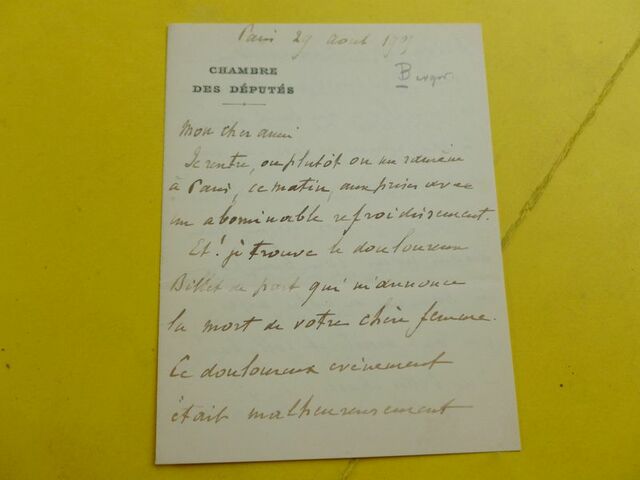 Paris 29 août
CHAMBRE
DES DÉPUTÉS
Berger
Mon cher ami
Je rentre, ou plutôt on me ramène
à Paris, ce matin, aux prises avec
un abominable refroidissement.
Et! je trouve le douloureux
Billet de part qui m'annonce
la mort de votre chère femme.
Ce douloureux évènement
était malheureusement